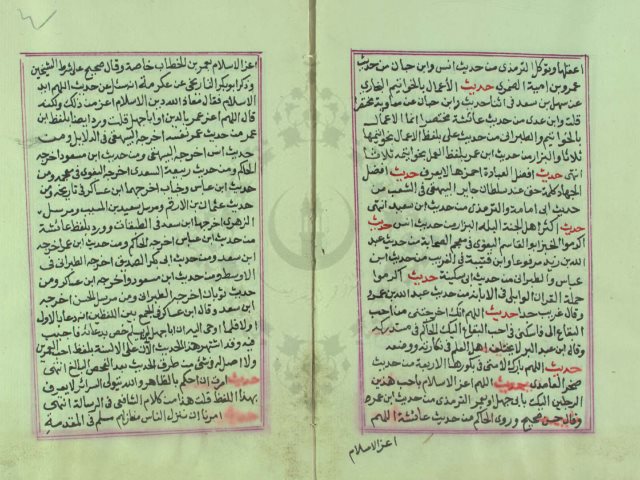 اعقلها وتوكل الترمذي من حديث انس وابن حبان من حديث
عمرو بن امية الضمري حديث الأعمال بالخواتيم البخاري
عن سهل بن سعد في اثنا حديث وابن حبان عن معاوية مختصرا
قلت وابن عدي من حديث عائشة مختصرا انما الاعمال
بالخواتيم والطبراني من حديث علي بلفظ الاعمال بخواتيمها
ثلاثا والبزار من حديث ابن عمر بلفظ العمل بخواتيمه ثلاثا
انتهى حديث افضل العبادة احمزها لا يعرف حديث افضل
الجهاد كلمة حق عند سلطان جاير البيهقي في الشعب من
حديث ابي امامة والترمذي من حديث ابي سعيد انتهى
حديث اكثر اهل الجنة البله البزار من حديث انس حديث
اكرموا الخبز ابو القاسم البغوي في معجم الصحابة من حديث عبد
الله بن زيد مرفوعا وابن قتيبة في الغريب من حديث ابن
عباس والطبراني من حديث ابي سكينة حديث اكرموا
حملة القران الوايلي في الابانة من حديث عبد الله بن عمرو
وقال غريب جدا حديث اللهم انك اخرجتني من احب
البقاع الي فاسكني في احب البقاع اليك الحاكم في مستدركه
وقال ابن عبد البر لا يختلف اهل العلم في نكارته ووضعه
حديث اللهم بارك لامتي في بكورها الاربعة من حديث
صخر الغامدي حديث اللهم اعز الاسلام باحب هذين
الرجلين اليك بابي جهل او بعمر الترمذي من حديث ابن عمر
وقال حسن صحيح وروى الحاكم من حديث عائشة اللهم
اعز الاسلام
اعز الاسلام بعمر بن الخطاب خاصة وقال صحيح على شرط الشيخين
وذكر ابو بكر التاريخي عن عكرمة انه سئل عن حديث اللهم ايد
الاسلام فقال معاذ الله دين الاسلام اعز من ذلك ولكنه
قال اللهم اعز عمر بالدين او ابا جهل قلت ورد ايضا بلفظ ابن
عمر من حديث عمر نفسه اخرجه البيهقي في الدلايل ومن
حديث انس اخرجه البيهقي ومن حديث ابن مسعود اخرجه
الحاكم ومن حديث ربيعة السعدي اخرجه البغوي في معجمه ومن
حديث ابن عباس وخباب اخرجهما ابن عساكر في تاريخه ومن
حديث عثمان بن الارقم ومرسل سعيد بن المسيب ومرسل
الزهري اخرجها ابن سعد في الطبقات وورد بلفظ عائشة
من حديث ابن عباس اخرجه الحاكم ومن حديث ابن عمر اخرجه
ابن سعد ومن حديث ابي بكر الصديق اخرجه الطبراني في
الاوسط ومن حديث ابن مسعود اخرجه ابن عساكر ومن
حديث ثوبان اخرجه الطبراني ومن مرسل الحسن اخرجه
ابن سعد وقال ابن عساكر في الجمع بين اللفظين انه دعا بالاول
اولا فلما اوحي اليه ان ابا جهل لن يسلم خص بدعائه فاجيب
فيه وقد اشتهر هذا الحديث الان على الالسنة بلفظ احب العمرين
ولا اصل له في شي من طرف الحديث بعد الفحص البالغ انتهى
حديث امرت ان احكم بالظاهر والله يتولى السرائر لا يعرف
بهذا اللفظ قلت هذا من كلام الشافعي في الرسالة انتهى
حديث امرنا ان ننزل الناس منازلهم مسلم في المقدمة